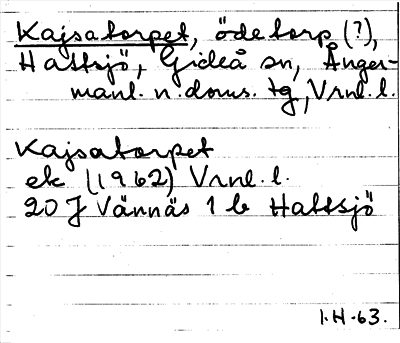 Kajsatorpet, ödetorp (?),
Hattsjö, Gideå sn, Ånger-
manl. n. doms. tg, Vrnl. l.
Kajsatorpet
ek (1962) Vrnl. l.
20 J Vännäs 1 b Hattsjö
I.H.63.